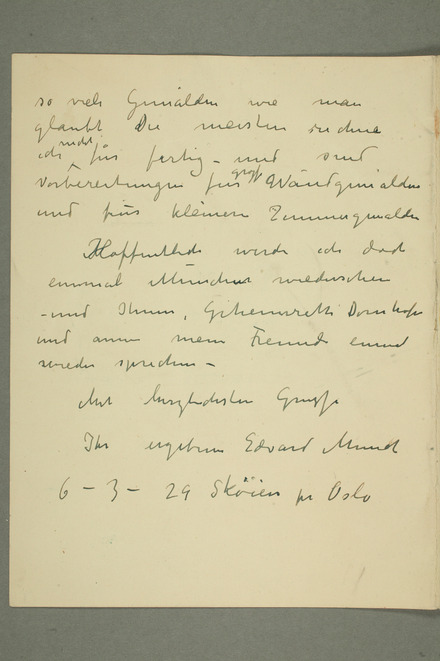 so viele Gemälden wie man
glaubt Die meisten rechne
ich nicht für fertig – und sind
Vorbereitungen für grosse Wandgemälden
und für kleinere Zimmergemälden
Hoffentlich werde ich doch
einmal München wiedersehen
– und Ihnen, Geheimrath Dornhöfer
und meine Freunde einmal
wieder sprechen –
Mit herzlichsten Grüsse
Ihr ergebener Edvard Munch
6 – 3 – 29 Sköien pr Oslo